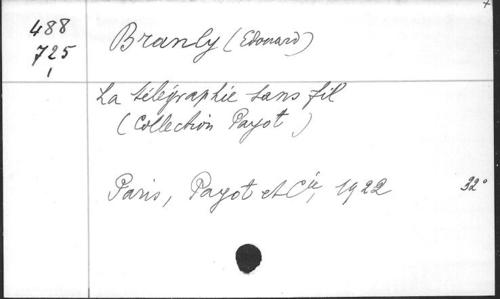 488
725
1
Branly (Edouard)
La télégraphie sans fil
(Collection Payot)
Paris, Payot et Cie, 1922 32°